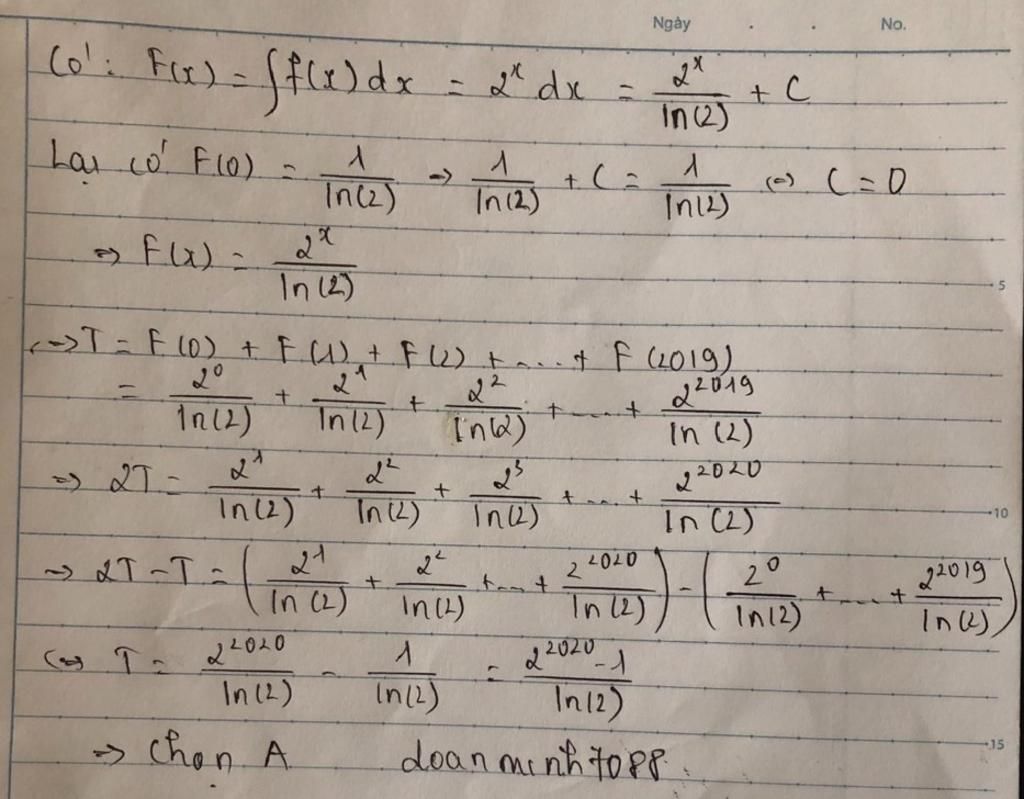 Ngày . . No.
Có: F(x) = ∫f(x)dx = 2^x dx = 2^x/ln(2) + C
Lại có F(0) = 1/ln(2) → 1/ln(2) + C = 1/ln(2) ⇔ C = 0
⇒ F(x) = 2^x/ln(2)
5
⇔ T = F(0) + F(1) + F(2) + .... + F(2019)
= 2^0/ln(2) + 2^1/ln(2) + 2^2/ln(2) + .... + 2^2019/ln(2)
⇒ 2T = 2^1/ln(2) + 2^2/ln(2) + 2^3/ln(2) + ... + 2^2020/ln(2)
10
⇒ 2T - T = (2^1/ln(2) + 2^2/ln(2) + ... + 2^2020/ln(2)) - (2^0/ln(2) + .... + 2^2019/ln(2))
⇔ T = 2^2020/ln(2) - 1/ln(2) = 2^2020-1/ln(2)
⇒ Chọn A doanminh7088.
15